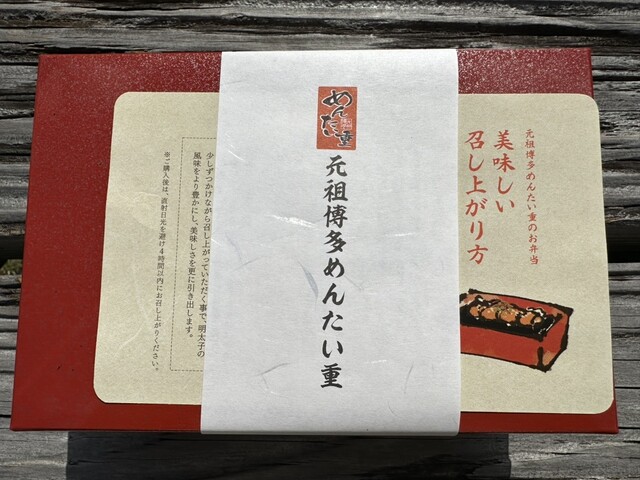 元祖博多めんたい重のお弁当
美味しい
召し上がり方
めんたい重
元祖博多めんたい重
少しずつかけながら召し上がっていただく事で、明太子の
風味をより豊かにし、美味しさを更に引き出します。
※ご購入後は、直射日光を避け4時間以内にお召し上がりください。